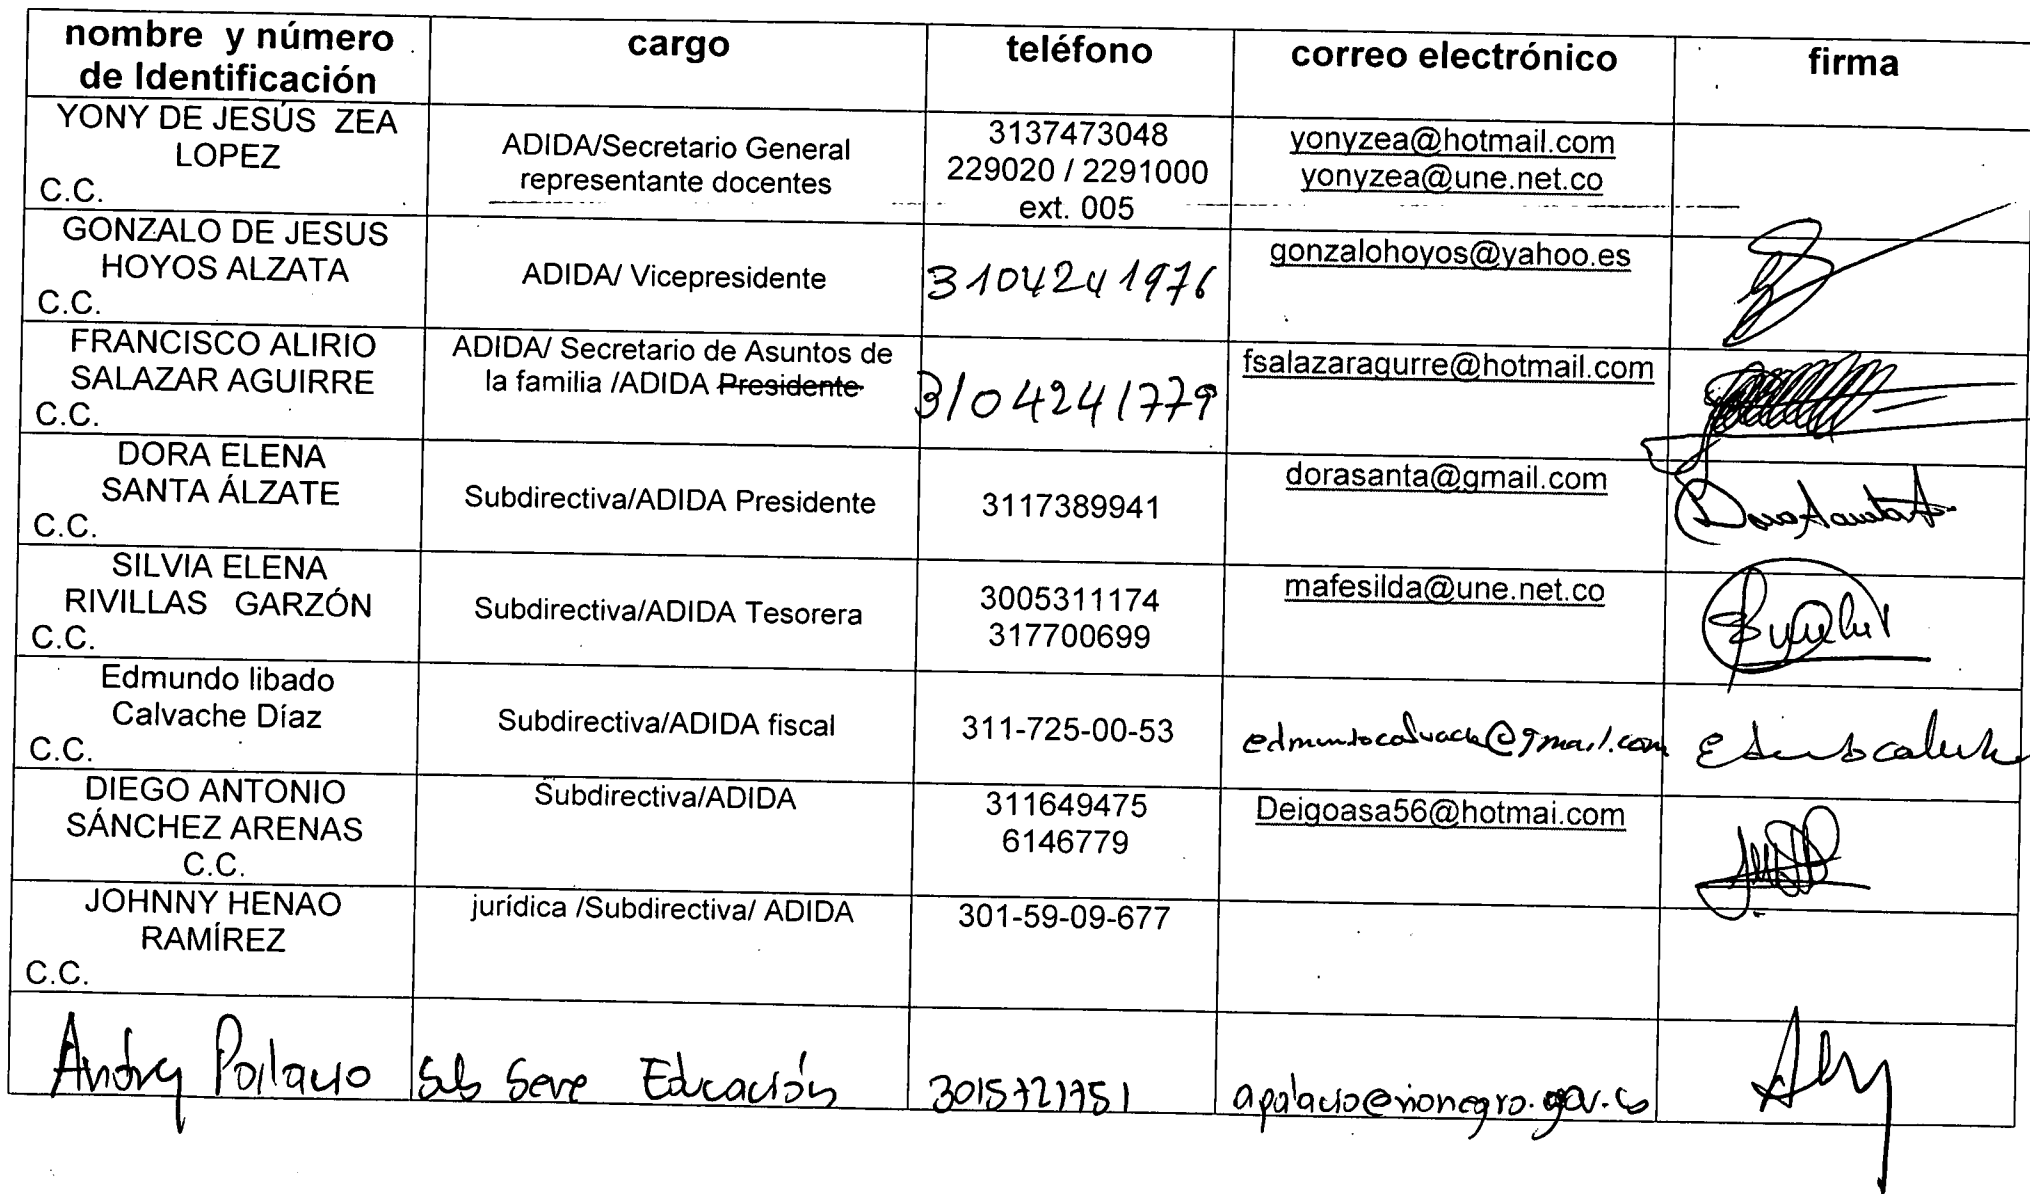 nombre y número de Identificación
cargo
teléfono
correo electrónico
firma
YONY DE JESÚS ZEA
LOPEZ
C.C.
ADIDA/Secretario General
representante docentes
3137473048
229020 / 2291000
ext. 005
yonyzea@hotmail.com
yonyzea@une.net.co
GONZALO DE JESUS
HOYOS ALZATA
C.C.
ADIDA/ Vicepresidente
3104241976
gonzalohoyos@yahoo.es
FRANCISCO ALIRIO
SALAZAR AGUIRRE
C.C.
ADIDA/ Secretario de Asuntos de
la familia /ADIDA Presidente
3104241779
fsalazaragurre@hotmail.com
DORA ELENA
SANTA ÁLZATE
C.C.
Subdirectiva/ADIDA Presidente
3117389941
dorasanta@gmail.com
SILVIA ELENA
RIVILLAS GARZÓN
C.C.
Subdirectiva/ADIDA Tesorera
3005311174
317700699
mafesilda@une.net.co
Edmundo libado
Calvache Díaz
C.C.
Subdirectiva/ADIDA fiscal
311-725-00-53
edmundocalvache@gmail.com
DIEGO ANTONIO
SÁNCHEZ ARENAS
C.C.
Subdirectiva/ADIDA
311649475
6146779
Deigoasa56@hotmai.com
JOHNNY HENAO
RAMÍREZ
C.C.
jurídica /Subdirectiva/ ADIDA
301-59-09-677
Sub Educación
3015721751
apalacio@rionegro.gov.co